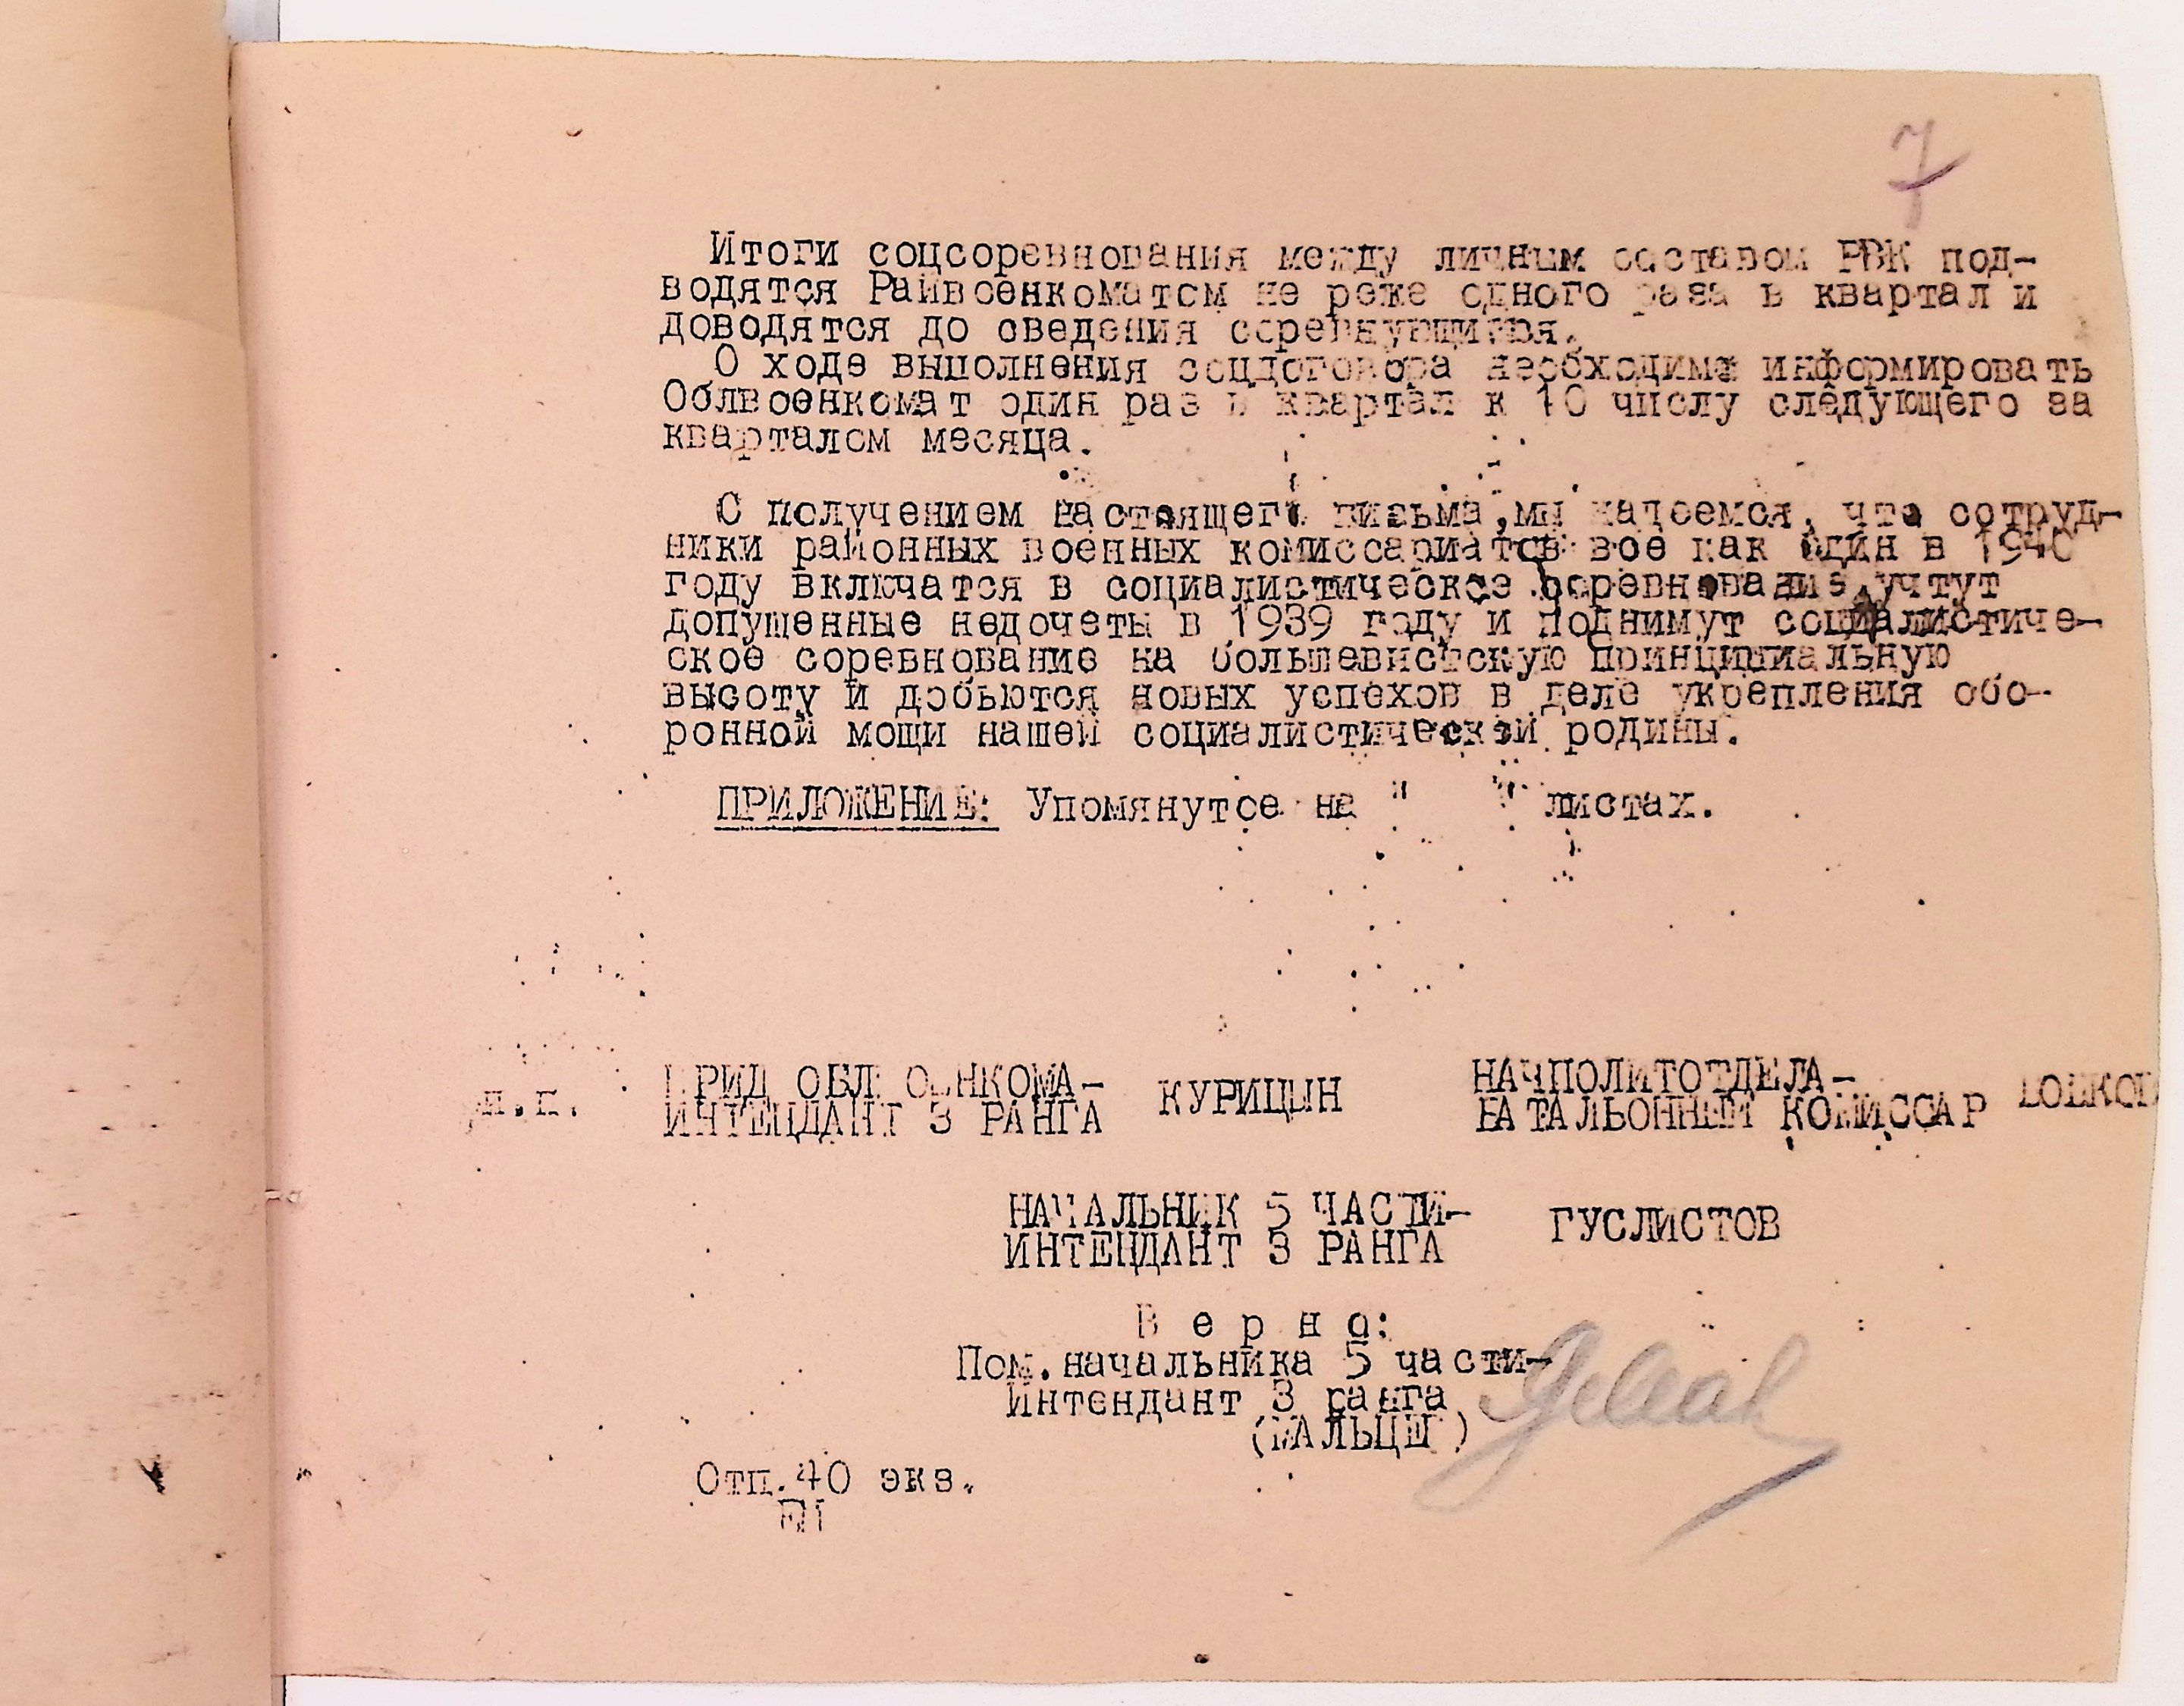 7
Итоги соцсоревнования между личным составом РВК под-
водятся Райвоенкоматом не реже одного раза в квартал и
доводятся до сведения соревнующихся.
О ходе выполнения соцдоговора необходимо информировать
Облвоенкомат один раз в квартал к 10 числу следующего за
кварталом месяца.
С получением настоящего письма, мы надеемся, что сотруд-
ники районных военных комиссариатов все как один в 1940
году включатся в социалистическое соревнование, учтут
допущенные недочеты в 1939 году и поднимут социалистиче-
ское соревнование на большевистскую принципиальную
высоту и добьются новых успехов в деле укрепления обо-
ронной мощи нашей социалистической родины.
ПРИЛОЖЕНИЕ: Упомянутое на " " листах.
п.п. ВРИД ОБЛВОЕНКОМА- КУРИЦЫН НАЧПОЛИТОТДЕЛА-
ИНТЕНДАНТ 3 РАНГА БАТАЛЬОННЫЙ КОМИССАР
НАЧАЛЬНИК 5 ЧАСТИ- ГУСЛИСТОВ
ИНТЕНДАНТ 3 РАНГА
В е р н о:
Пом. начальника 5 части-
Интендант 3 ранга
Отп. 40 экз.